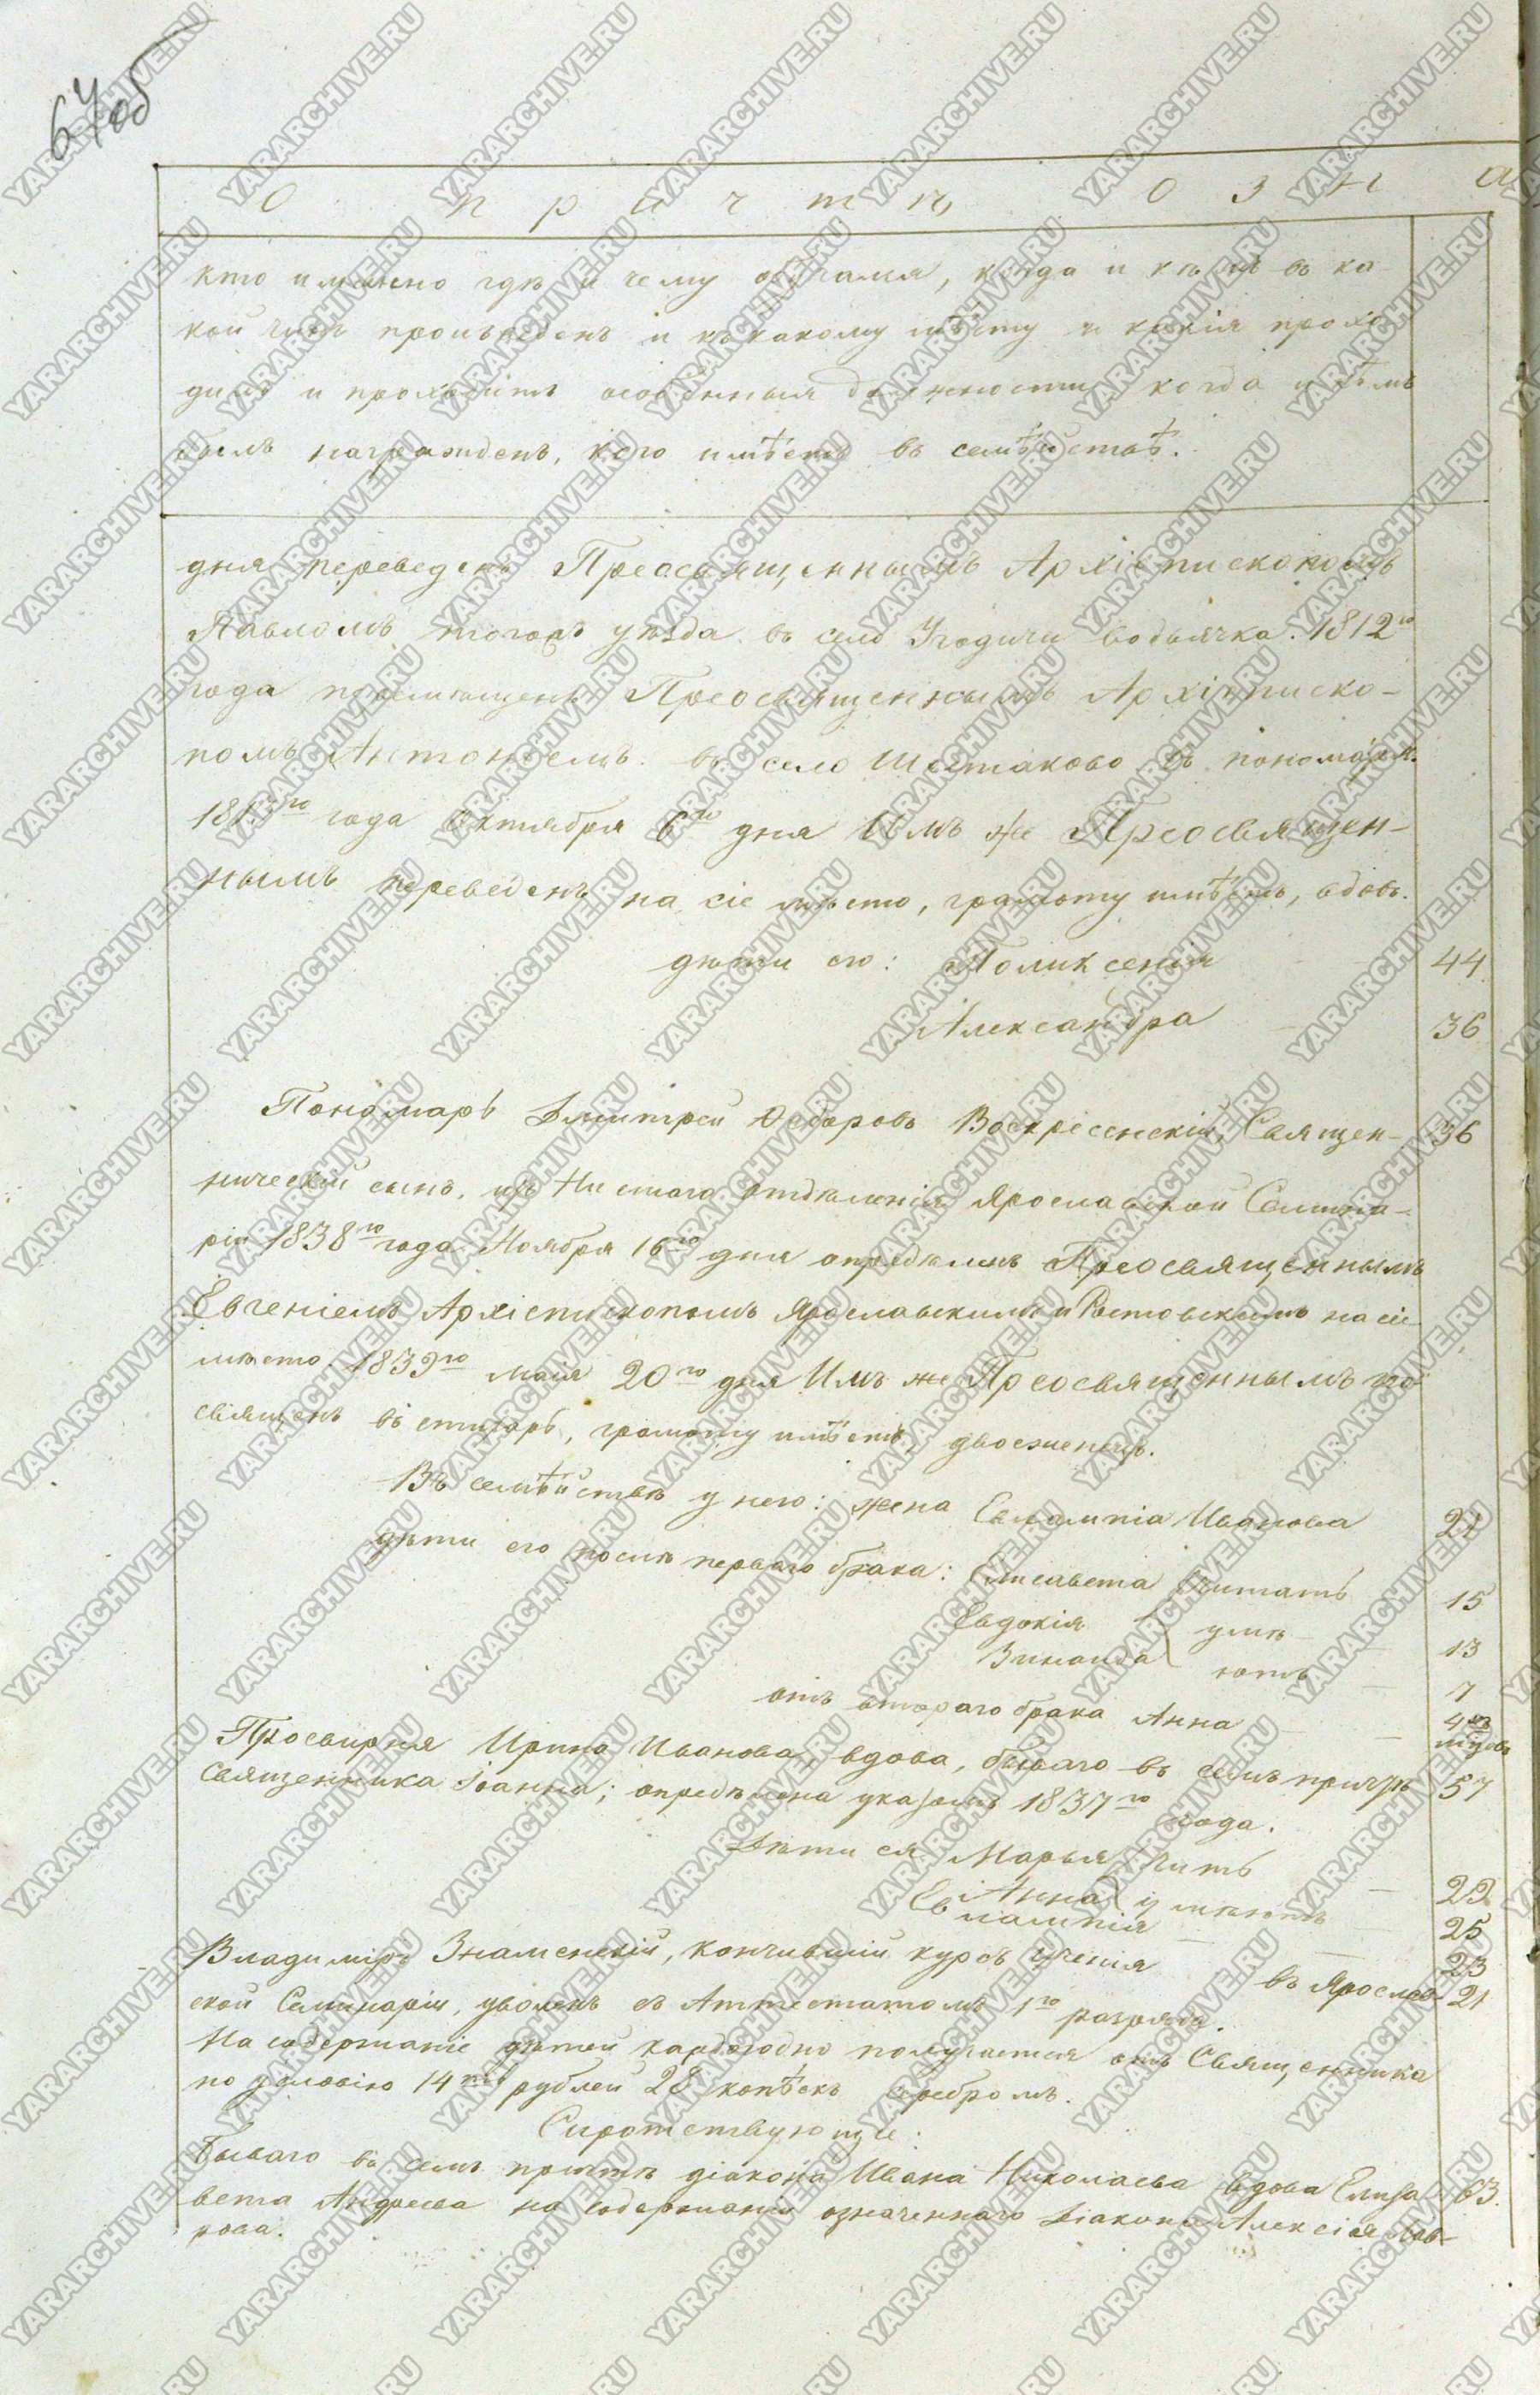 64об
О причтѣ озна
кто именно гдѣ и чему обучался, когда и кѣмъ въ ка-
кой чинъ произведенъ и къ какому мѣсту и какія прохо-
дилъ и проходитъ особенныя должности, когда и чѣмъ
былъ награжденъ, кого имѣетъ въ семѣйствѣ.
дня переведенъ Преосвященнымъ Архіепископомъ
Павломъ тогожъ уѣзда въ село Угодичи водьячка. 1812го
года перемѣщенъ Преосвященнымъ Архіеписко-
помъ Антоніемъ въ село Шестаково въ пономаря.
года Октября 6го дня Имъ же Преосвящен-
нымъ переведенъ на сіе мѣсто, грамоту имѣетъ, вдовъ.
дѣти его: Поликсенія 44
Александра 36
Пономарь Дмитрей Ѳедоровъ Воскресенскій, Священ- 36
ническій сынъ, изъ Низшаго отдѣленія Ярославской Семина-
ріи 1838го года Ноября 16го дня опредѣленъ Преосвященнымъ
Евгеніемъ Архіепископомъ Ярославскимъ и Ростовскимъ на сіе
мѣсто. 1839го Маія 20го дня Имъ же Преосвященнымъ по
священъ въ стихарь, грамоту имѣетъ, двоеженецъ.
Въ семѣйствѣ у него: жена Евлампіа Иванова 21
дѣти его послѣ перваго брака: Елисавета читать 15
Евдокія умѣ- 13
Зинаида ютъ 7
отъ втораго брака Анна 4хъ мѣсяцъ
Просвирня Ирина Иванова, вдова, бываго въ семъ причтѣ 57
Священника Іоанна; опредѣлена указомъ 1837го года.
Дѣти ея Марья чит 29
Анна умѣютъ 25
Евлампія 23
Владиміръ Знаменскій, кончившій курсъ ученія въ Ярослав- 21
ской Семинаріи, уволенъ съ Аттестатомъ 1го разряда.
На содержаніе дѣтей каждогодно получается отъ Священника
по условію 14ть рублей 28 копѣекъ серебромъ.
Сиротствующіе:
Бываго въ семъ причтѣ діакона Ивана Николаева вдова Елиза 63.
вета Андреева на содержаніи означеннаго Діакона Алексія Лав-
рова.